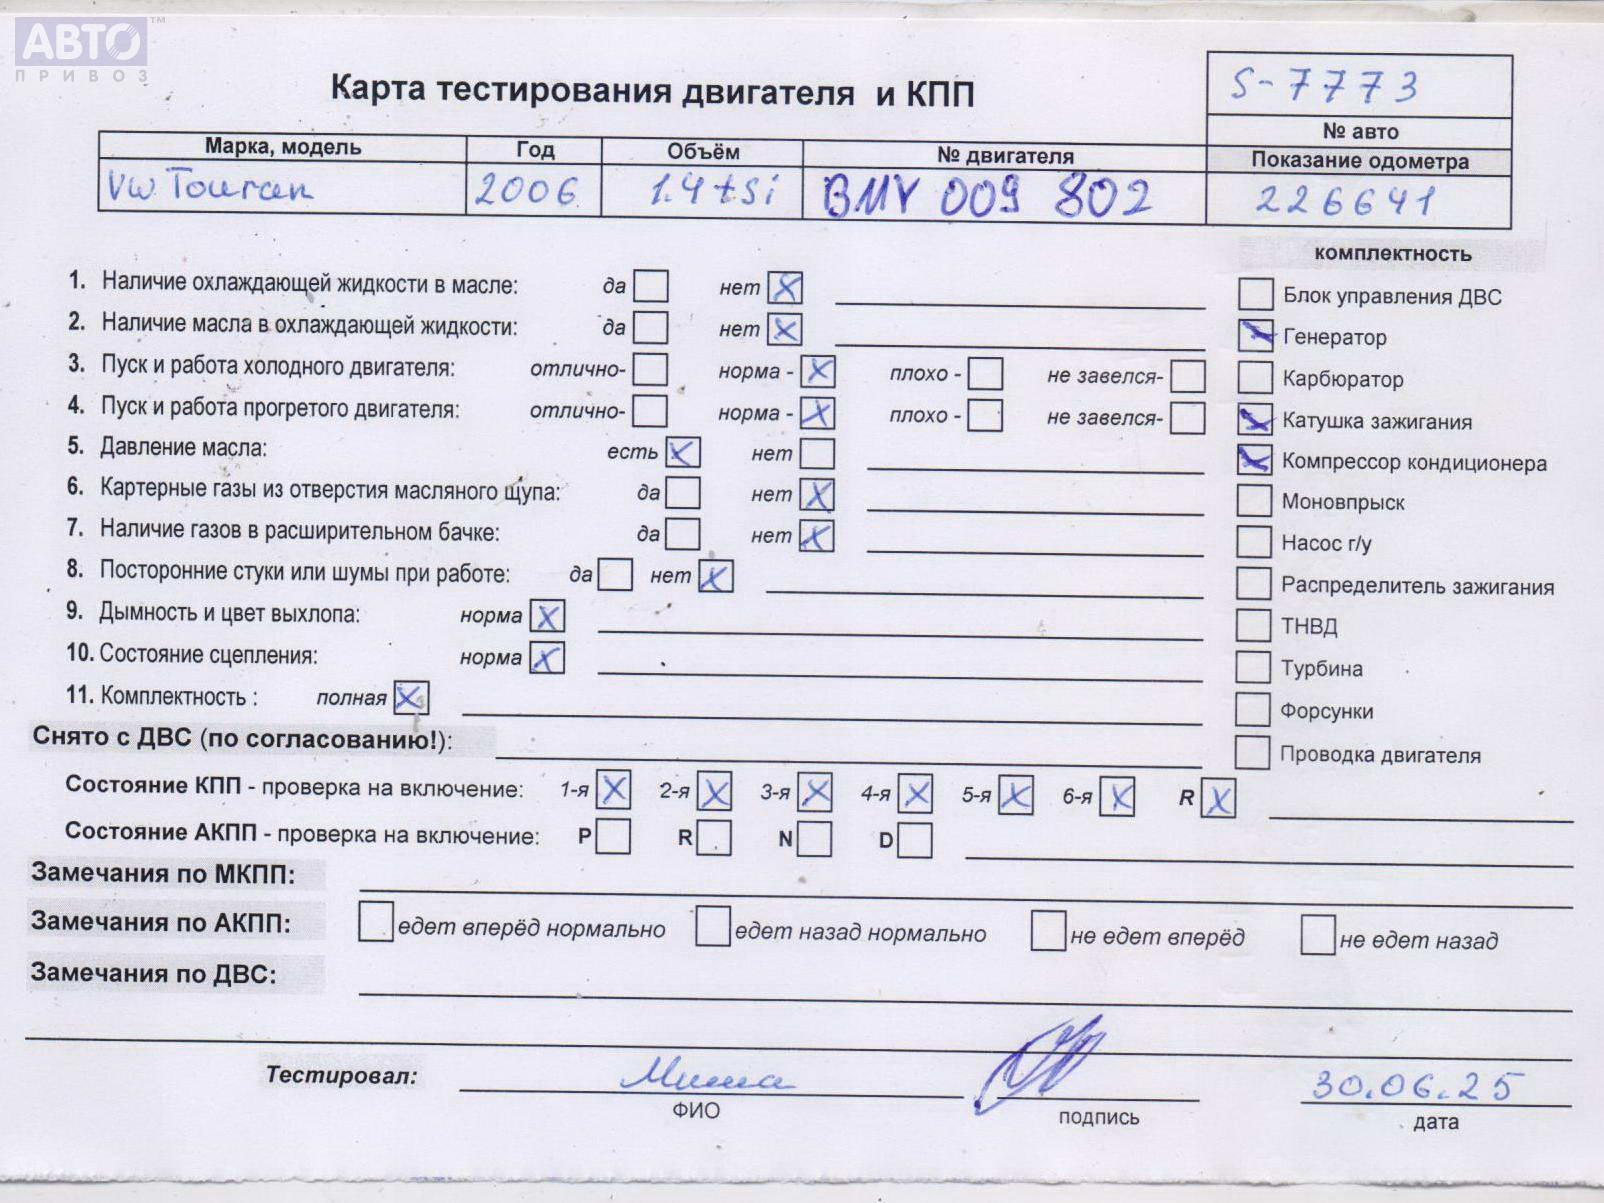 АВТО™
ПРИВОЗ
S-7773
Карта тестирования двигателя и КПП
№ авто
Марка, модель Год Объём № двигателя Показание одометра
VW Touran 2006 1.4 tsi BMY 009 802 226641
комплектность
1. Наличие охлаждающей жидкости в масле: да нет
Блок управления ДВС
2. Наличие масла в охлаждающей жидкости: да нет
Генератор
3. Пуск и работа холодного двигателя: отлично- норма - плохо - не завелся-
Карбюратор
4. Пуск и работа прогретого двигателя: отлично- норма - плохо - не завелся-
Катушка зажигания
5. Давление масла: есть нет
Компрессор кондиционера
6. Картерные газы из отверстия масляного щупа: да нет
Моновпрыск
7. Наличие газов в расширительном бачке: да нет
Насос г/у
8. Посторонние стуки или шумы при работе: да нет
Распределитель зажигания
9. Дымность и цвет выхлопа: норма
ТНВД
10. Состояние сцепления: норма
Турбина
11. Комплектность : полная
Форсунки
Снято с ДВС (по согласованию!):
Проводка двигателя
Состояние КПП - проверка на включение: 1-я 2-я 3-я 4-я 5-я 6-я R
Состояние АКПП - проверка на включение: P R N D
Замечания по МКПП:
Замечания по АКПП: едет вперёд нормально едет назад нормально не едет вперёд не едет назад
Замечания по ДВС:
Тестировал: Миша 30.06.25
ФИО подпись дата